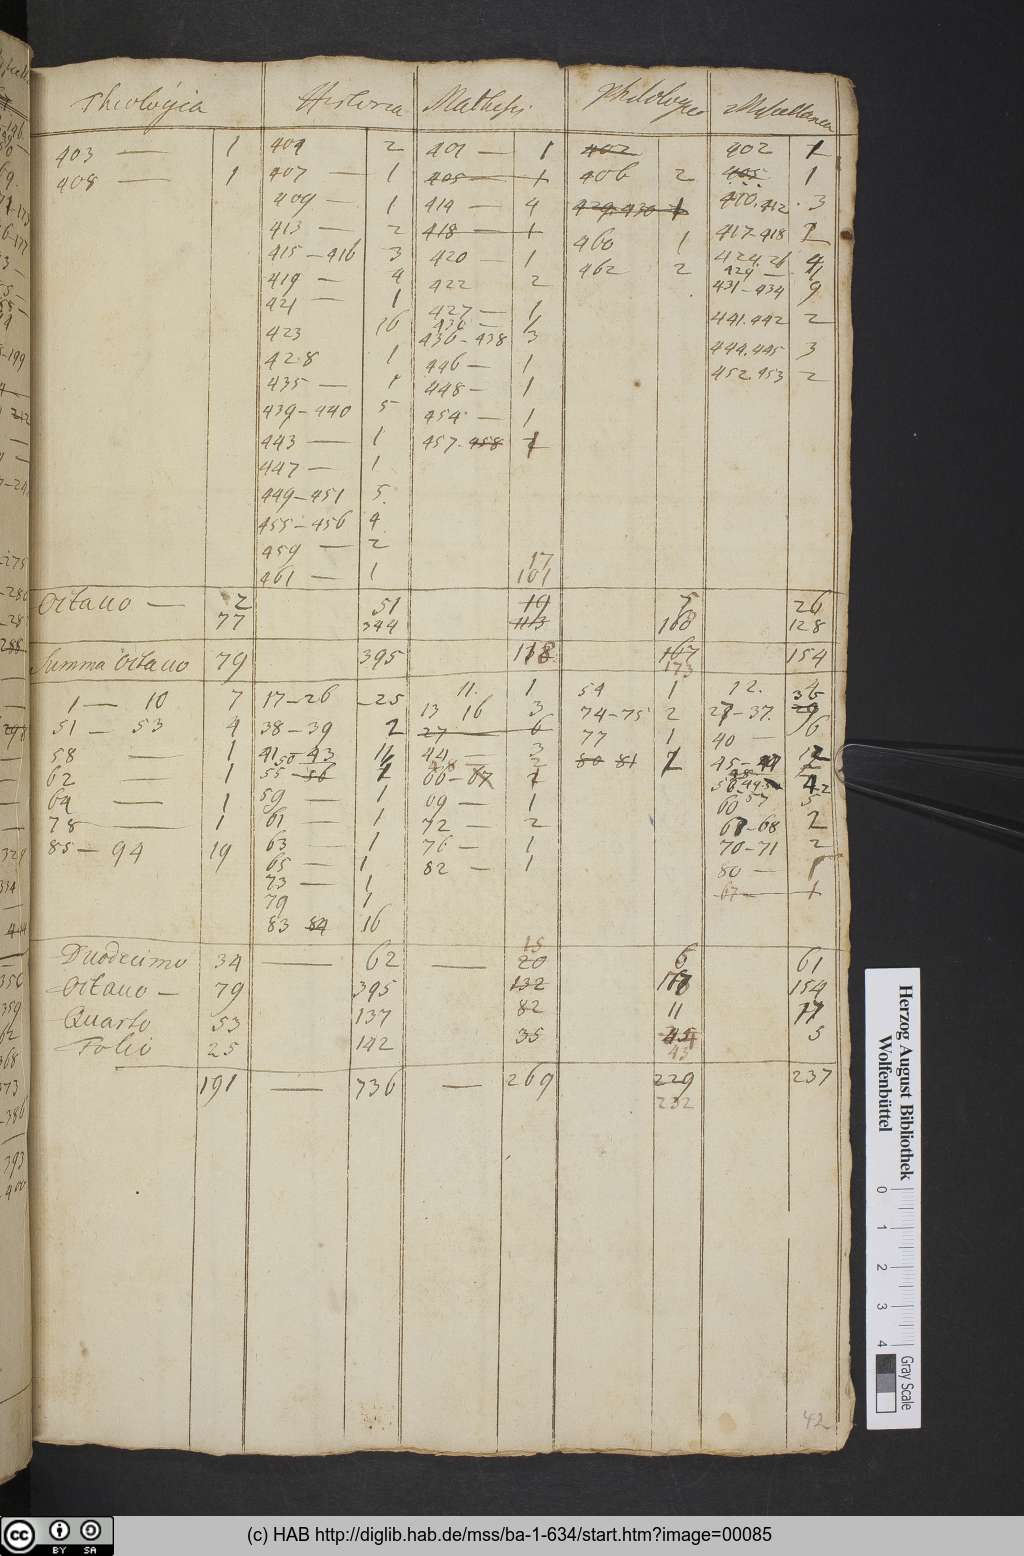 Theologia Historia Mathesis Philologie Miscellanea
403 — 1
408 — 1
404 2
407 — 1
409 — 1
413 — 2
415-416 3
419 — 4
421 — 1
423 16
428 1
435 — 1
439-440 5
443 — 1
447 — 1
449-451 5.
455-456 4
459 — 2
461 — 1
401 — 1
405 — 1
414 — 4
418 — 1
420 — 1
422 2
427 — 1
430 —
436-438 3
446 — 1
448 — 1
454 — 1
457. 458
17
101
402
406 2
429.430 1
460 1
462 2
402 1
405 1
410.412. 3
417-418 2
424.26 4
429 — 1
431-434 9
441.442 2
444.445 3
452.453 2
Octauo — 2 51 19 5 26
77 344 113 168 128
Summa Octauo 79 395 118 167 154
173
1 — 10 7
51 — 53 4
58 — 1
62 — 1
64 — 1
78 — 1
85 — 94 19
17-26 25
38-39 2
41-43
50
55-56
59 — 1
61 — 1
63 — 1
65 — 1
73 — 1
79 1
83 84 16
11. 1
13 16 3
27 — 6
44 — 3
66-67
69 — 1
72 — 2
76 — 1
82 — 1
54 1
74-75 2
77 1
80 81
12. 4
27-37. 36
29
40 — 6
45-
60 57 5
67-68 2
70-71 2
80 — 1
67 — 1
15
Duodecimo 34 — 62 — 20 6 61
Octauo — 79 395 132 154
Quarto 53 137 82 11 17
Folio 25 142 35 45 5
43
191 — 736 — 269 229 237
232
42
Herzog August Bibliothek
Wolfenbüttel
0 1 2 3 4
Gray Scale
cc BY SA
(c) HAB http://diglib.hab.de/mss/ba-1-634/start.htm?image=00085